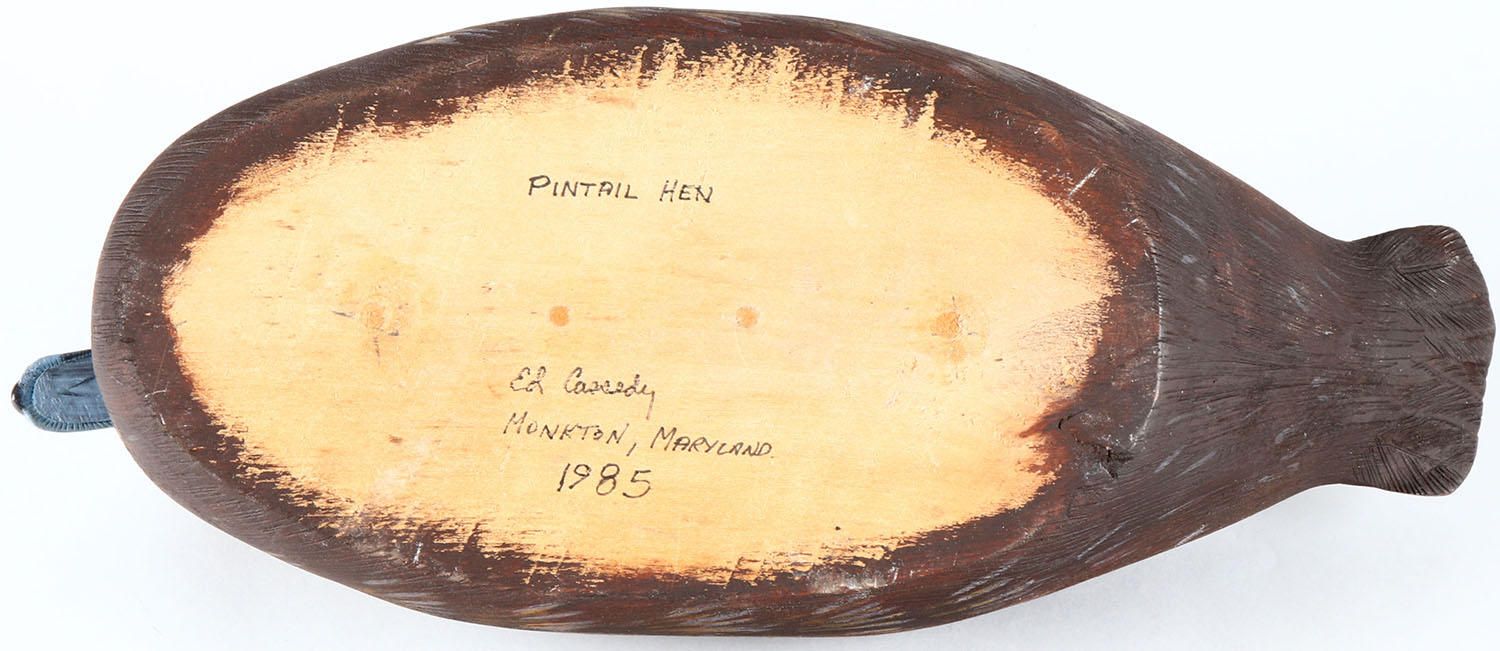 PINTAIL HEN
Ed Cassedy
MONKTON, MARYLAND.
1985